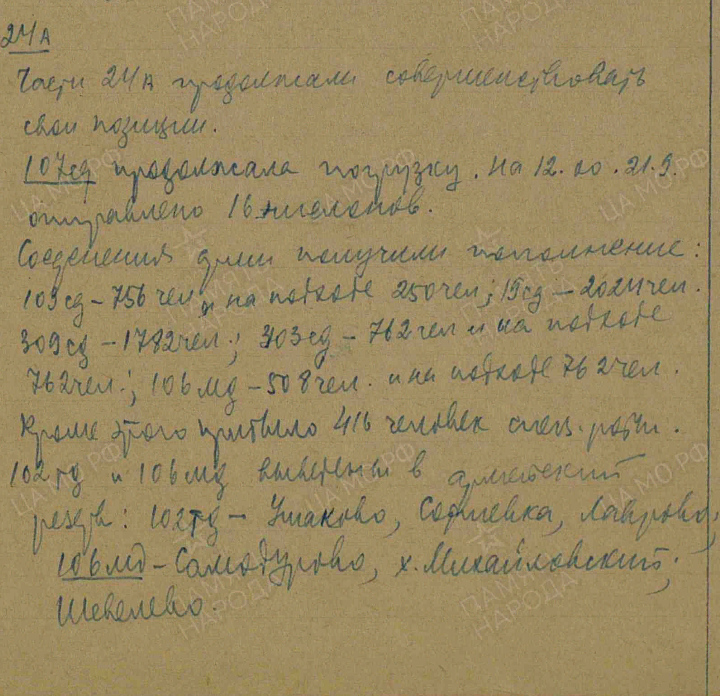 24А
Части 24А продолжали совершенствовать
свои позиции.
107сд продолжала погрузку. На 12.00. 21.9.
отправлено 16 эшелонов.
Соеденения армии получили пополнение:
103сд – 756 чел. и на подходе 250 чел; 19сд – 2024 чел.
309сд – 1782 чел.; 303сд – 762 чел и на подходе
762 чел.; 106 мд – 508 чел. и на подходе 762 чел.
Кроме этого прибыло 416 человек спец. роты.
102тд и 106мд выведены в армейский
резерв: 102тд – Ушаково, Софиевка, Лаврово;
106мд – Самодурово, х. Михайловский,
Шевелево.